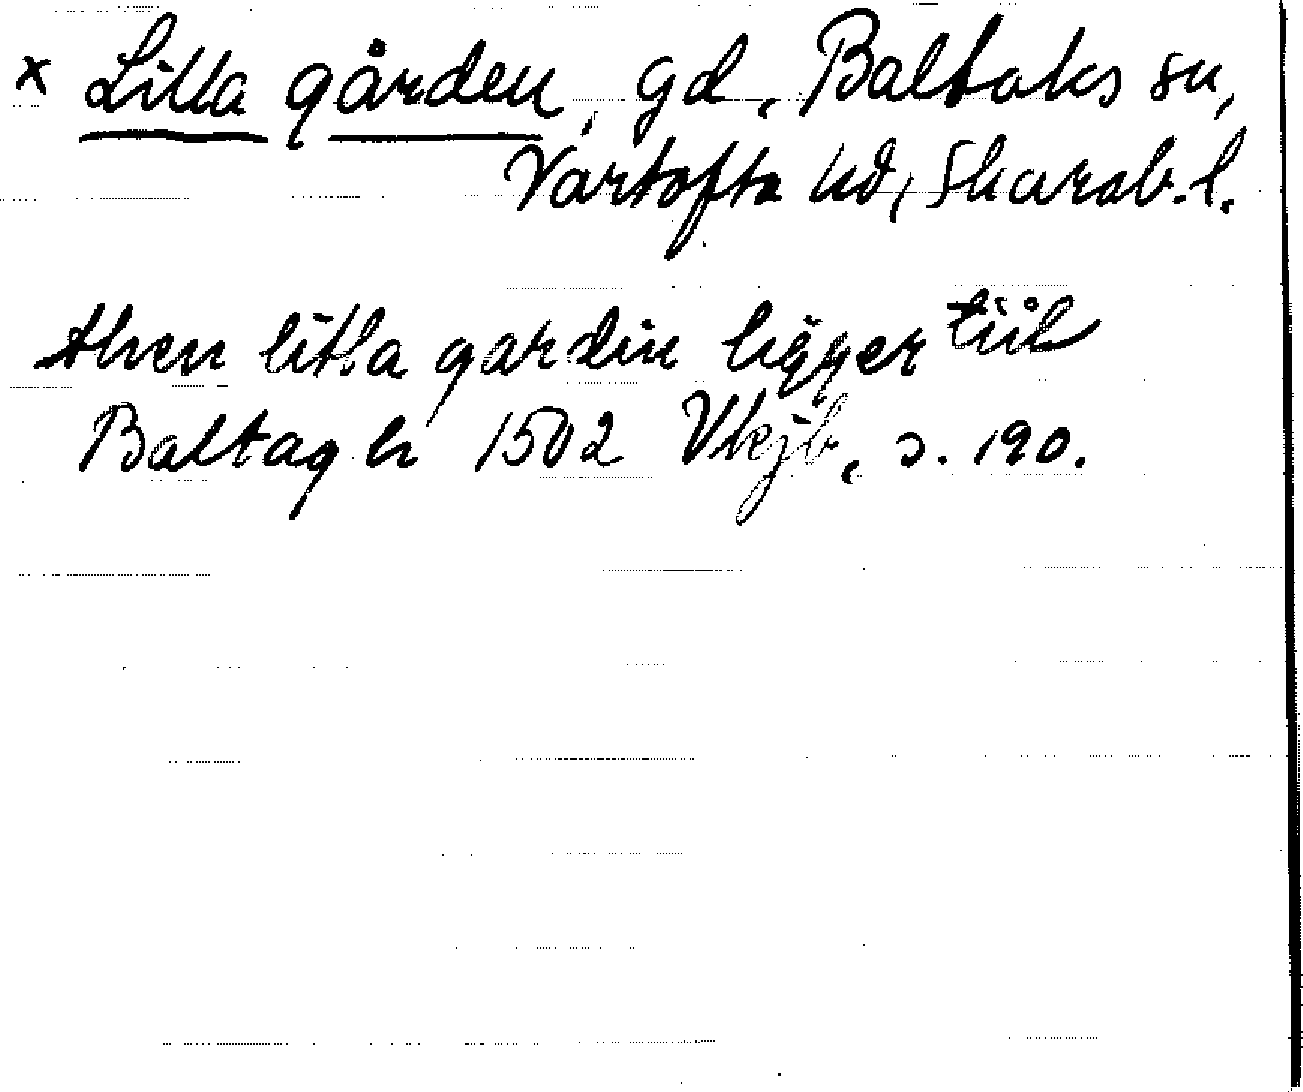 x Lilla gården, gd, Baltaks sn,
Vartofta hd, Skarab. l.
then litla gardin ligger tiil
Baltagh 1502 Vkjb, s. 190.